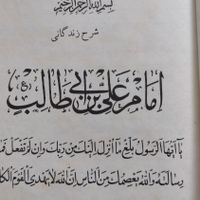 بسم الله الرحمن الرحیم
شرح زندگانی
امام علی بن ابی طالب (ع)
یا ایها الرسول بلغ ما انزل الیک من ربک و ان لم تفعل فما
رسالته والله یعصمک من الناس ان الله لا یهدی القوم الکا